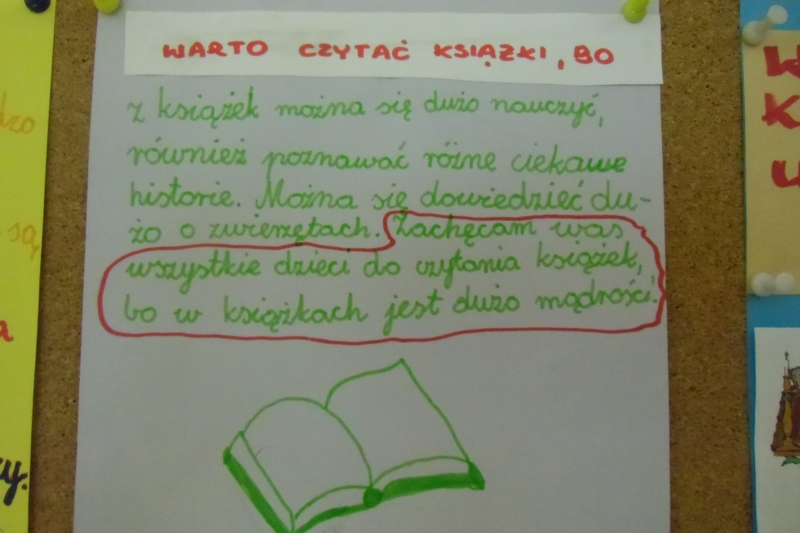 WARTO CZYTAĆ KSIĄŻKI, BO
z książek można się dużo nauczyć,
również poznawać różne ciekawe
historie. Można się dowiedzieć du-
żo o zwierzętach. Zachęcam was
wszystkie dzieci do czytania książek,
bo w książkach jest dużo mądrości.
dzo
są,
a
y.
W
K
u